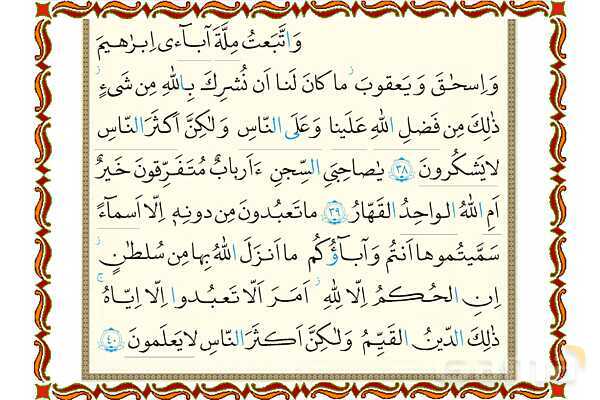 وَاتَّبَعتُ مِلَّةَ آبـآءى اِبرٰهيمَ
وَ اِسحٰـقَ وَ يَعقوبَ ۚ ما كانَ لَنا اَن نُشرِكَ بِاللّٰهِ مِن شَىءٍ ۚ
ذٰلِكَ مِن فَضلِ اللّٰهِ عَلَينا وَ عَلَى النّاسِ وَ لٰكِنَّ اَكثَرَ النّاسِ
لايَشكُرونَ ﴿٣٨﴾ يٰصاحِبَىِ السِّجنِ ءَاَربابٌ مُتَفَرِّقونَ خَيرٌ
اَمِ اللّٰهُ الواحِدُ القَهّارُ ﴿٣٩﴾ ماتَعبُدونَ مِن دونِهٖ اِلّا اَسمآءً
سَمَّيتُموها اَنتُم وَ آبـآؤُكُم ما اَنزَلَ اللّٰهُ بِها مِن سُلطٰنٍ ۚ
اِنِ الحُكمُ اِلّا لِلّٰهِ ۚ اَمَرَ اَلّا تَعبُدوا اِلّا اِيّاهُ ۚ
ذٰلِكَ الدّينُ القَيِّمُ وَ لٰكِنَّ اَكثَرَ النّاسِ لايَعلَمونَ ﴿٤٠﴾